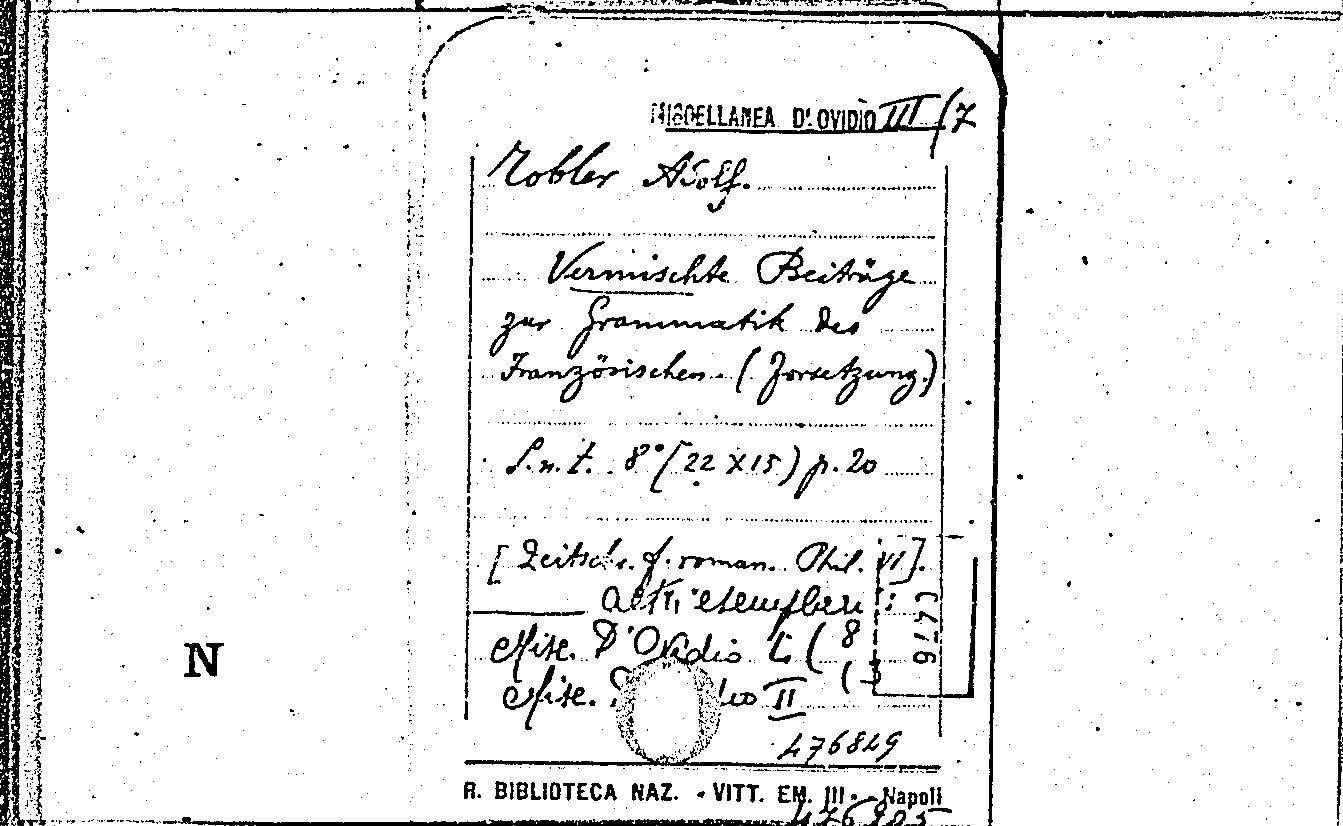 MISCELLANEA D'OVIDIO III (7
Tobler Adolf.
Vermischte Beiträge
zur Grammatik des
Französischen. (Forsetzung.)
S.n.t. 8° (22 X 15) p. 20
[Zeitsch. f. roman. Phil. VI].
altri esemplari :
Misc. D'Ovidio I. ( 8
Misc. II (3
N
476849
R. BIBLIOTECA NAZ. - VITT. EM. III - Napoli